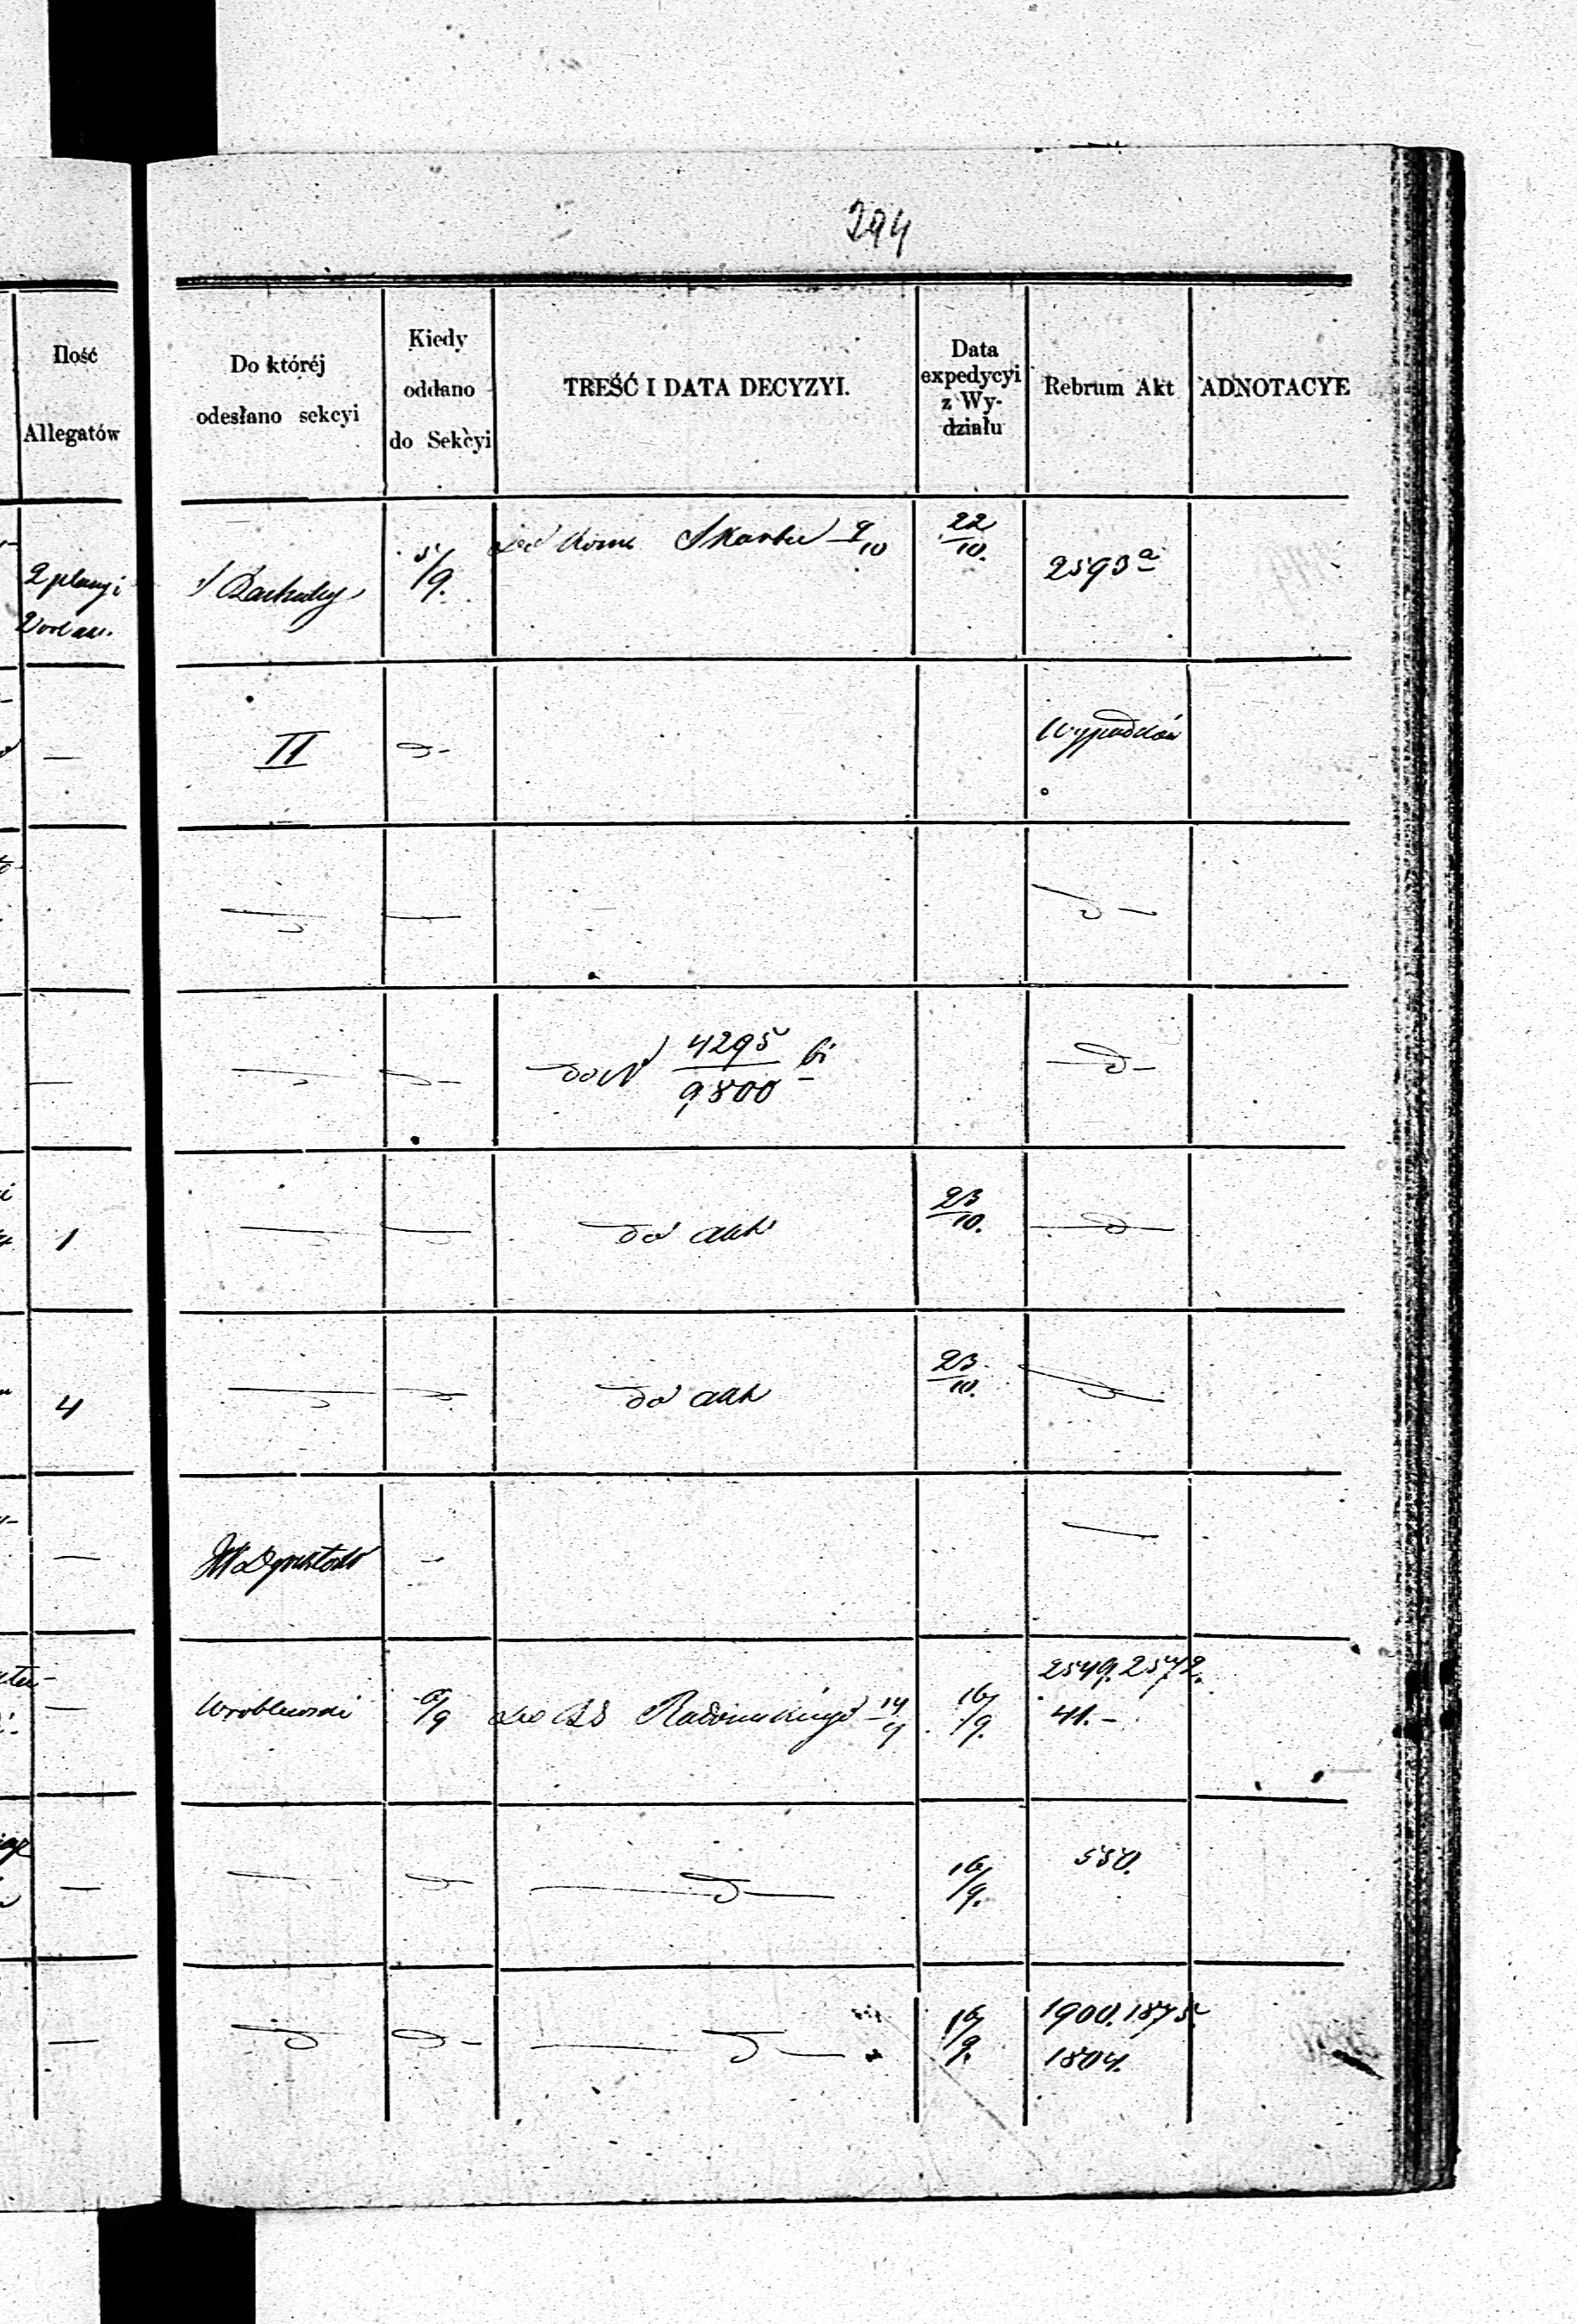 294
Ilość
Allegatów
Do któréj
odesłano sekcyi
Kiedy
oddano
do Sekcyi
TREŚĆ I DATA DECYZYI.
Data
expedycyi
z Wy-
działu
Rebrum Akt
ADNOTACYE
2 plany i
5/9.
Skarbu 9/10
22/10.
2593 a
—
II
d-
Wypadków
—
—
d—
—
—
d—
do N 4295/9800 bi
—d—
1
—
—
do akt
23/10.
—d—
4
—
—
do akt
23/10.
—d—
—
—
—
—
Wróblewski
6/9
Do Radomskiego 14/9
16/9.
2549. 2572.
41.–
—
—
—
—d—
16/9.
550.
—
—d
d—
—d—
16/9.
1900. 1875.
1804.